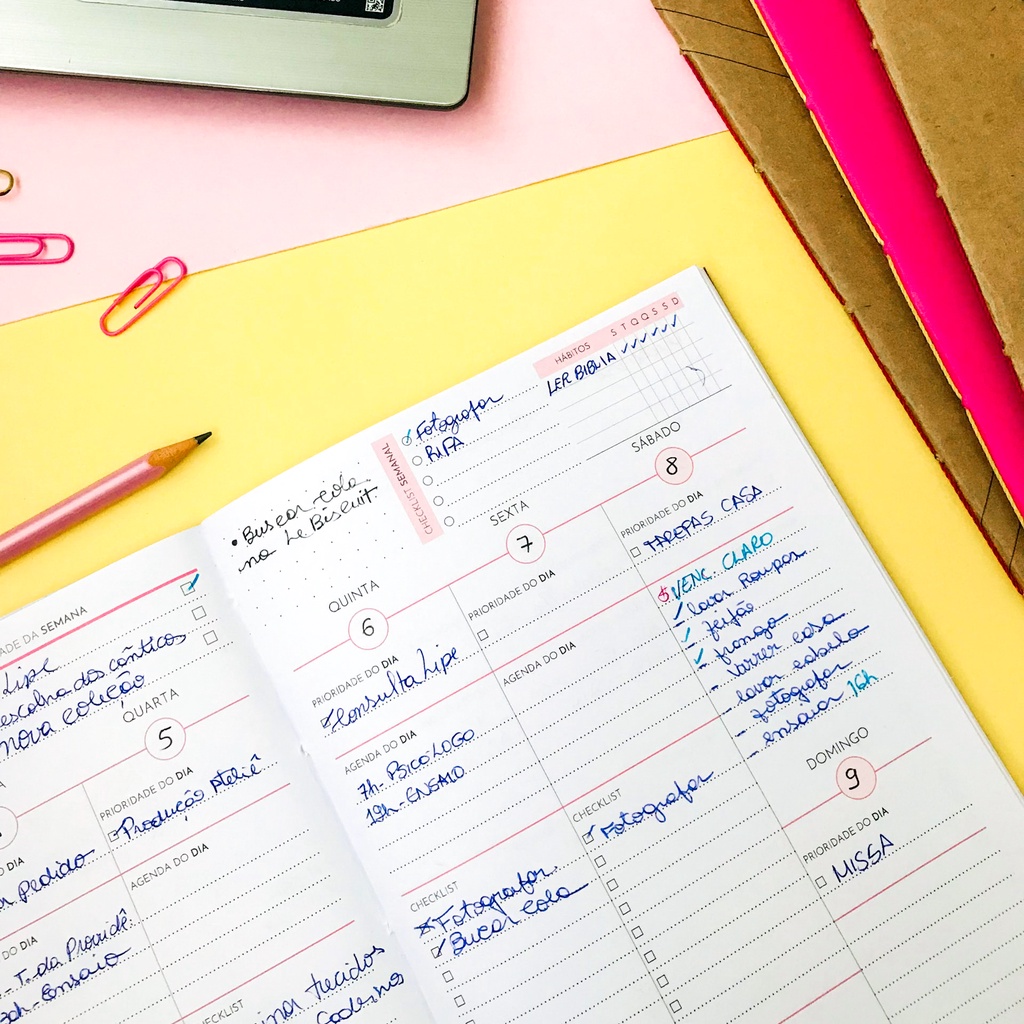 ADE DA SEMANA
Lipe
escolha dos cânticos
nova coleção
QUARTA
5
PRIORIDADE DO DIA
Produção Ateliê
AGENDA DO DIA
DO DIA
Pedido
DO DIA
- T. da Providê.
Ensaio
CHECKLIST
tecidos
• Buscar cola
na Le Biscuit.
CHECKLIST SEMANAL
Fotografar
RIFA
HÁBITOS S T Q Q S S D
LER BIBLIA
QUINTA
6
PRIORIDADE DO DIA
Consulta Lipe
AGENDA DO DIA
7h - PSICÓLOGO
19h - ENSAIO
CHECKLIST
Fotografar
Bucar cola
SEXTA
7
PRIORIDADE DO DIA
AGENDA DO DIA
CHECKLIST
Fotografar
SÁBADO
8
PRIORIDADE DO DIA
TAREFAS CASA
VENC. CLARO
lavar Roupas
feijão
frango
- Varrer casa
- lavar cabelo
- fotografar
- ensaiar 16h
DOMINGO
9
PRIORIDADE DO DIA
MISSA